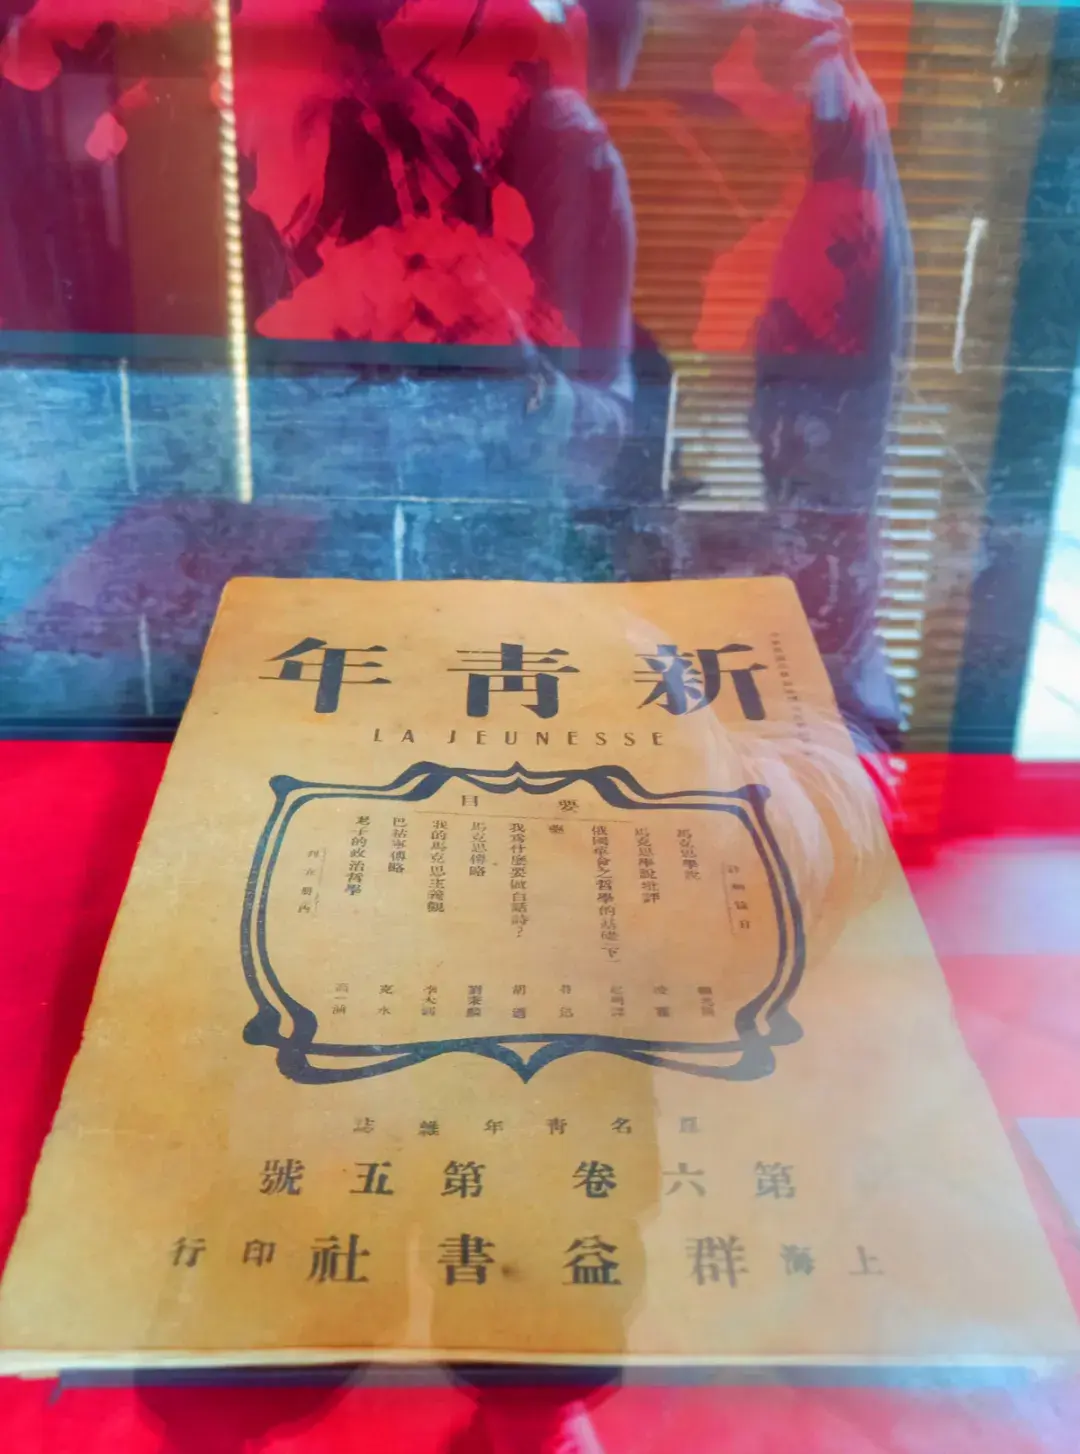 新靑年
LA JEUNESSE
要目
詳細篇目
馬克思學說 顧兆熊
馬克思學說批評 凌霜
俄國革命之哲學的基礎(下) 起明譯
藥 魯迅
我爲什麼要做白話詩? 胡適
馬克思傳略 劉秉麟
我的馬克思主義觀 李大釗
巴枯寧傳略 克水
老子的政治哲學 高一涵
列在册內
名靑年雜誌
第六卷第五號
上海群益書社印行